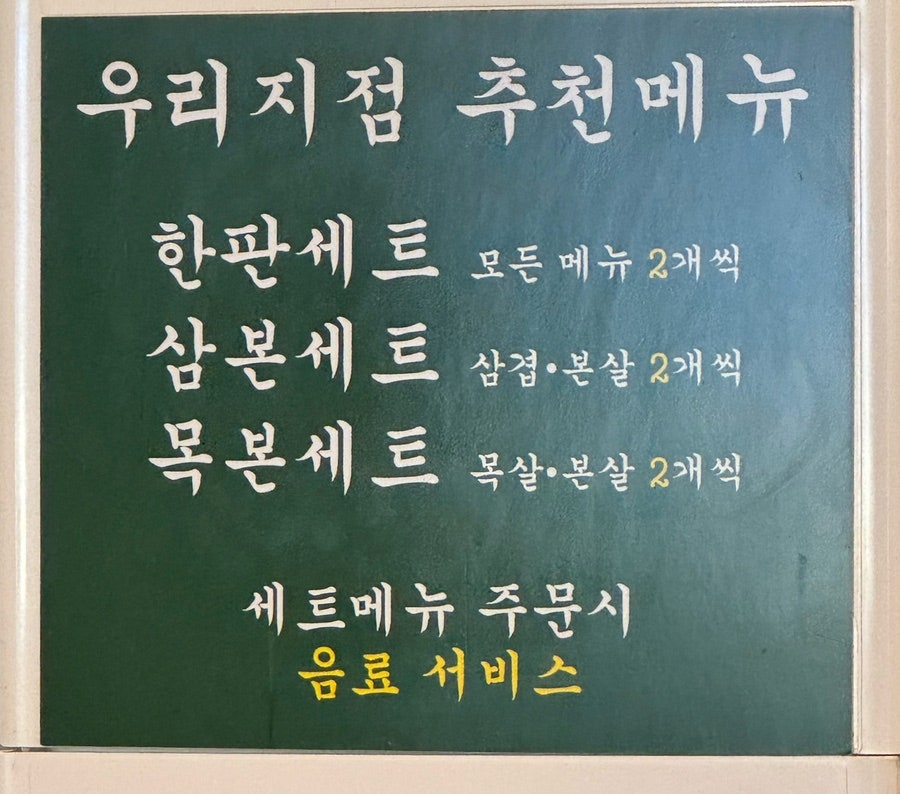 우리지점 추천메뉴
한판세트 모든 메뉴 2개씩
삼본세트 삼겹•본살 2개씩
목본세트 목살•본살 2개씩
세트메뉴 주문시
음료 서비스